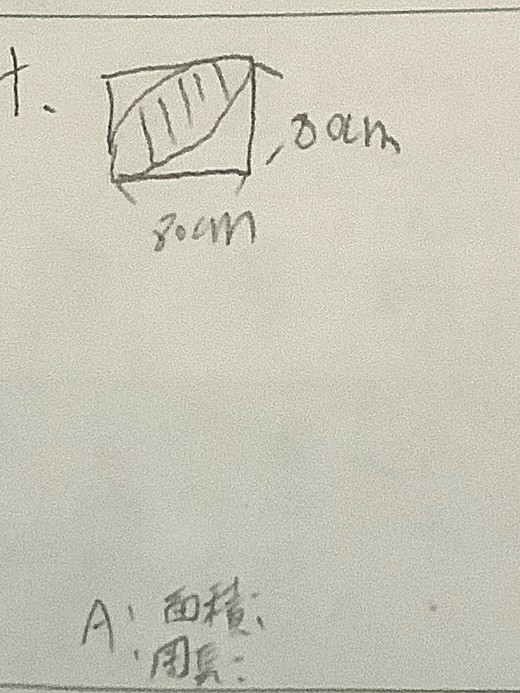 十、
80cm
80cm
A:面積:
周長: